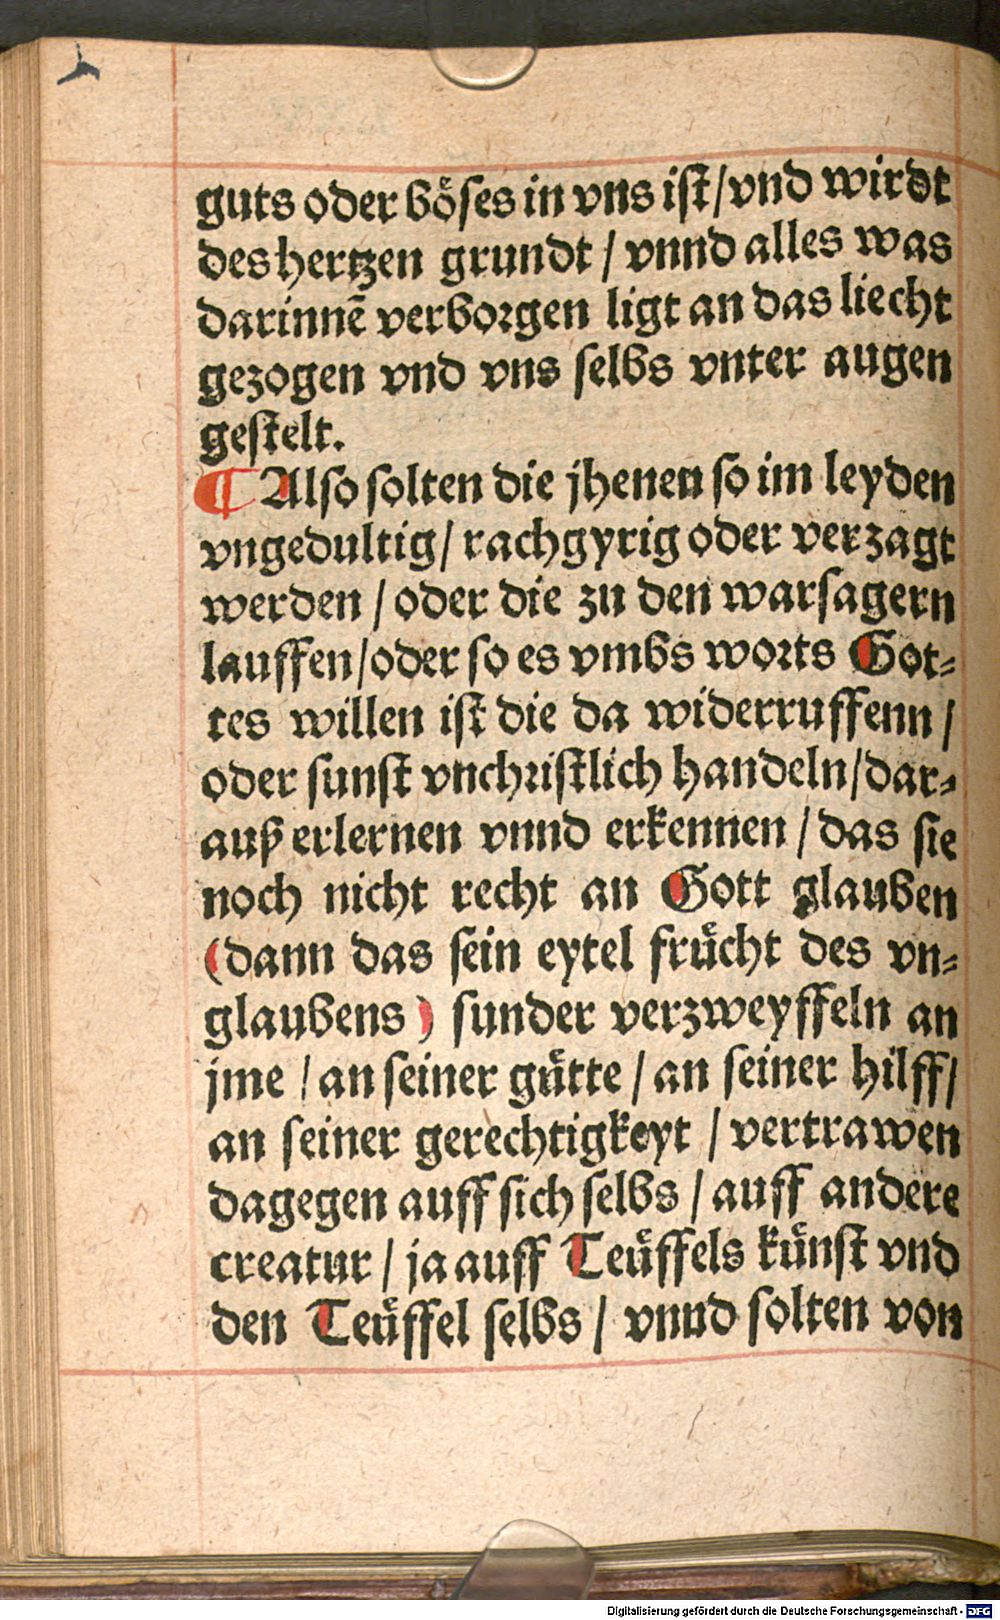 guts oder böses in vns ist/vnd wirdt
des hertzen grundt / vnnd alles was
darinnē verborgen ligt an das liecht
gezogen vnd vns selbs vnter augen
gestelt.
¶ Also solten die jhenen so im leyden
vngedultig/ rachgyrig oder verzagt
werden / oder die zu den warsagern
lauffen/oder so es vmbs worts Got⸗
tes willen ist die da widerruffenn /
oder sunst vnchristlich handeln/dar⸗
auß erlernen vnnd erkennen / das sie
noch nicht recht an Gott glauben
(dann das sein eytel frücht des vn⸗
glaubens) sunder verzweyffeln an
jme / an seiner gütte / an seiner hilff/
an seiner gerechtigkeyt / vertrawen
dagegen auff sich selbs / auff andere
creatur / ja auff Teüffels künst vnd
den Teüffel selbs / vnnd solten von
Digitalisierung gefördert durch die Deutsche Forschungsgemeinschaft - DFG